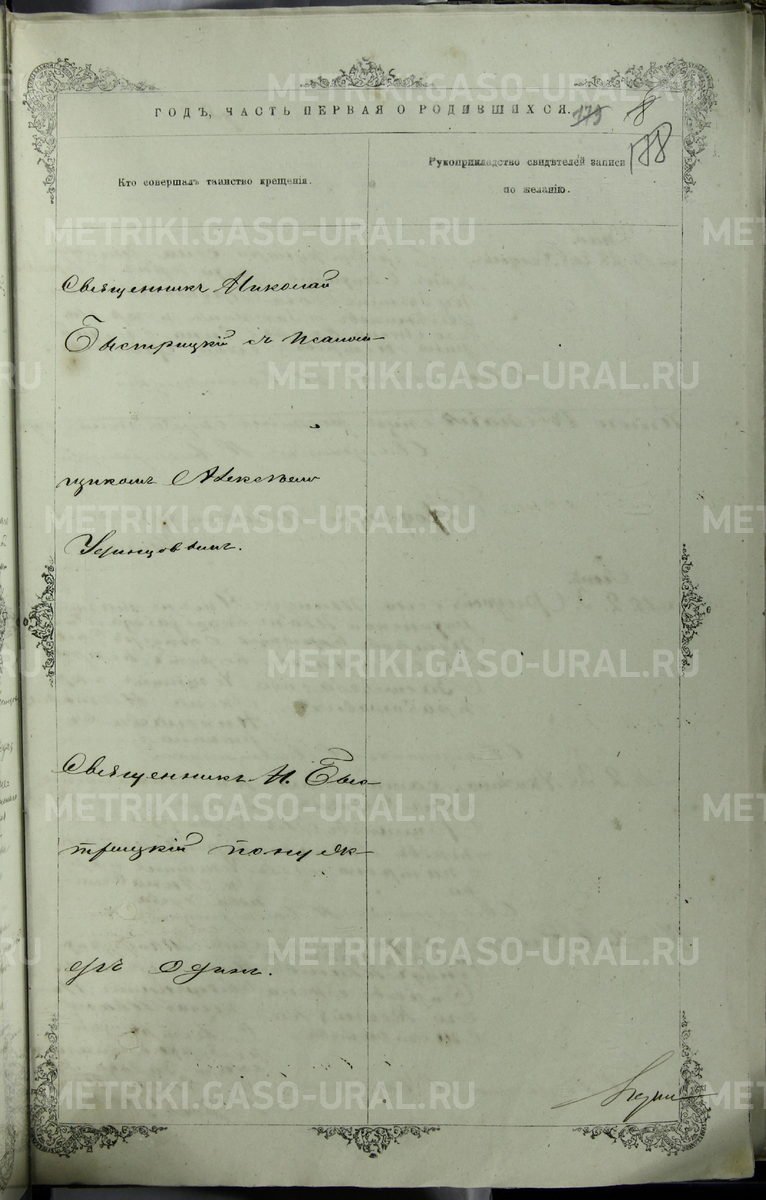 ГОДЪ, ЧАСТЬ ПЕРВАЯ О РОДИВШИХСЯ.
178
Кто совершалъ таинство крещенія.
Рукоприкладство свидѣтелей записи
по желанію.
Священникъ Николай
Быстрицкій съ псалом-
щикомъ Алексѣемъ
Удинцовымъ.
Священникъ Н. Быс-
трицкій
одинъ.
METRIKI.GASO-URAL.RU